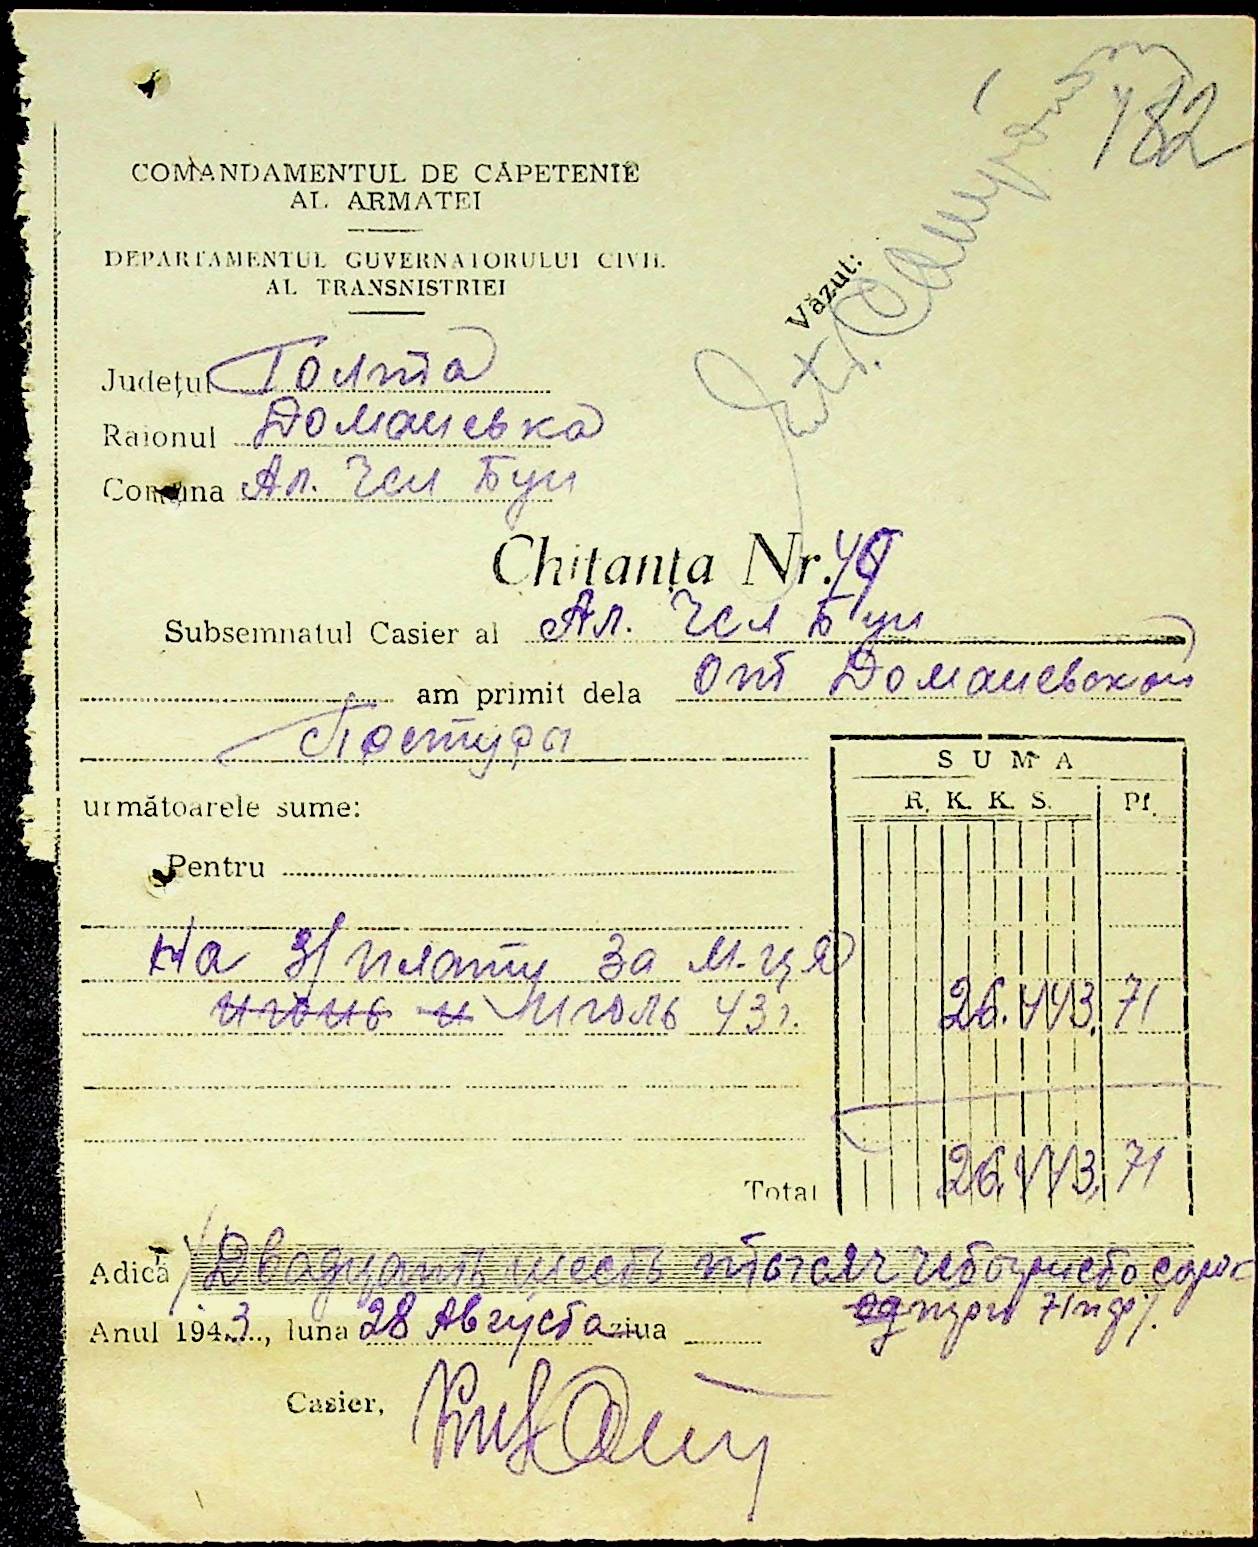 182
COMANDAMENTUL DE CĂPETENIE
AL ARMATEI
DEPARTAMENTUL GUVERNATORULUI CIVIL
AL TRANSNISTRIEI
Văzut:
Județul Голта
Raionul Доманевка
Comuna Ал. Чел Бун
Chitanța Nr.
Subsemnatul Casier al Ал. Чел Бун
am primit dela от Доманевской
Претуры
următoarele sume:
SUMA
R. K. K. S. Pf.
Pentru
На з/плату за м-ця
июнь и июль 43г. 26.443. 71
Total 26.443. 71
Adică Двадцать шесть тысяч четыриста сорок
71 пф).
Anul 1943, luna 28 Августа ziua
Casier,